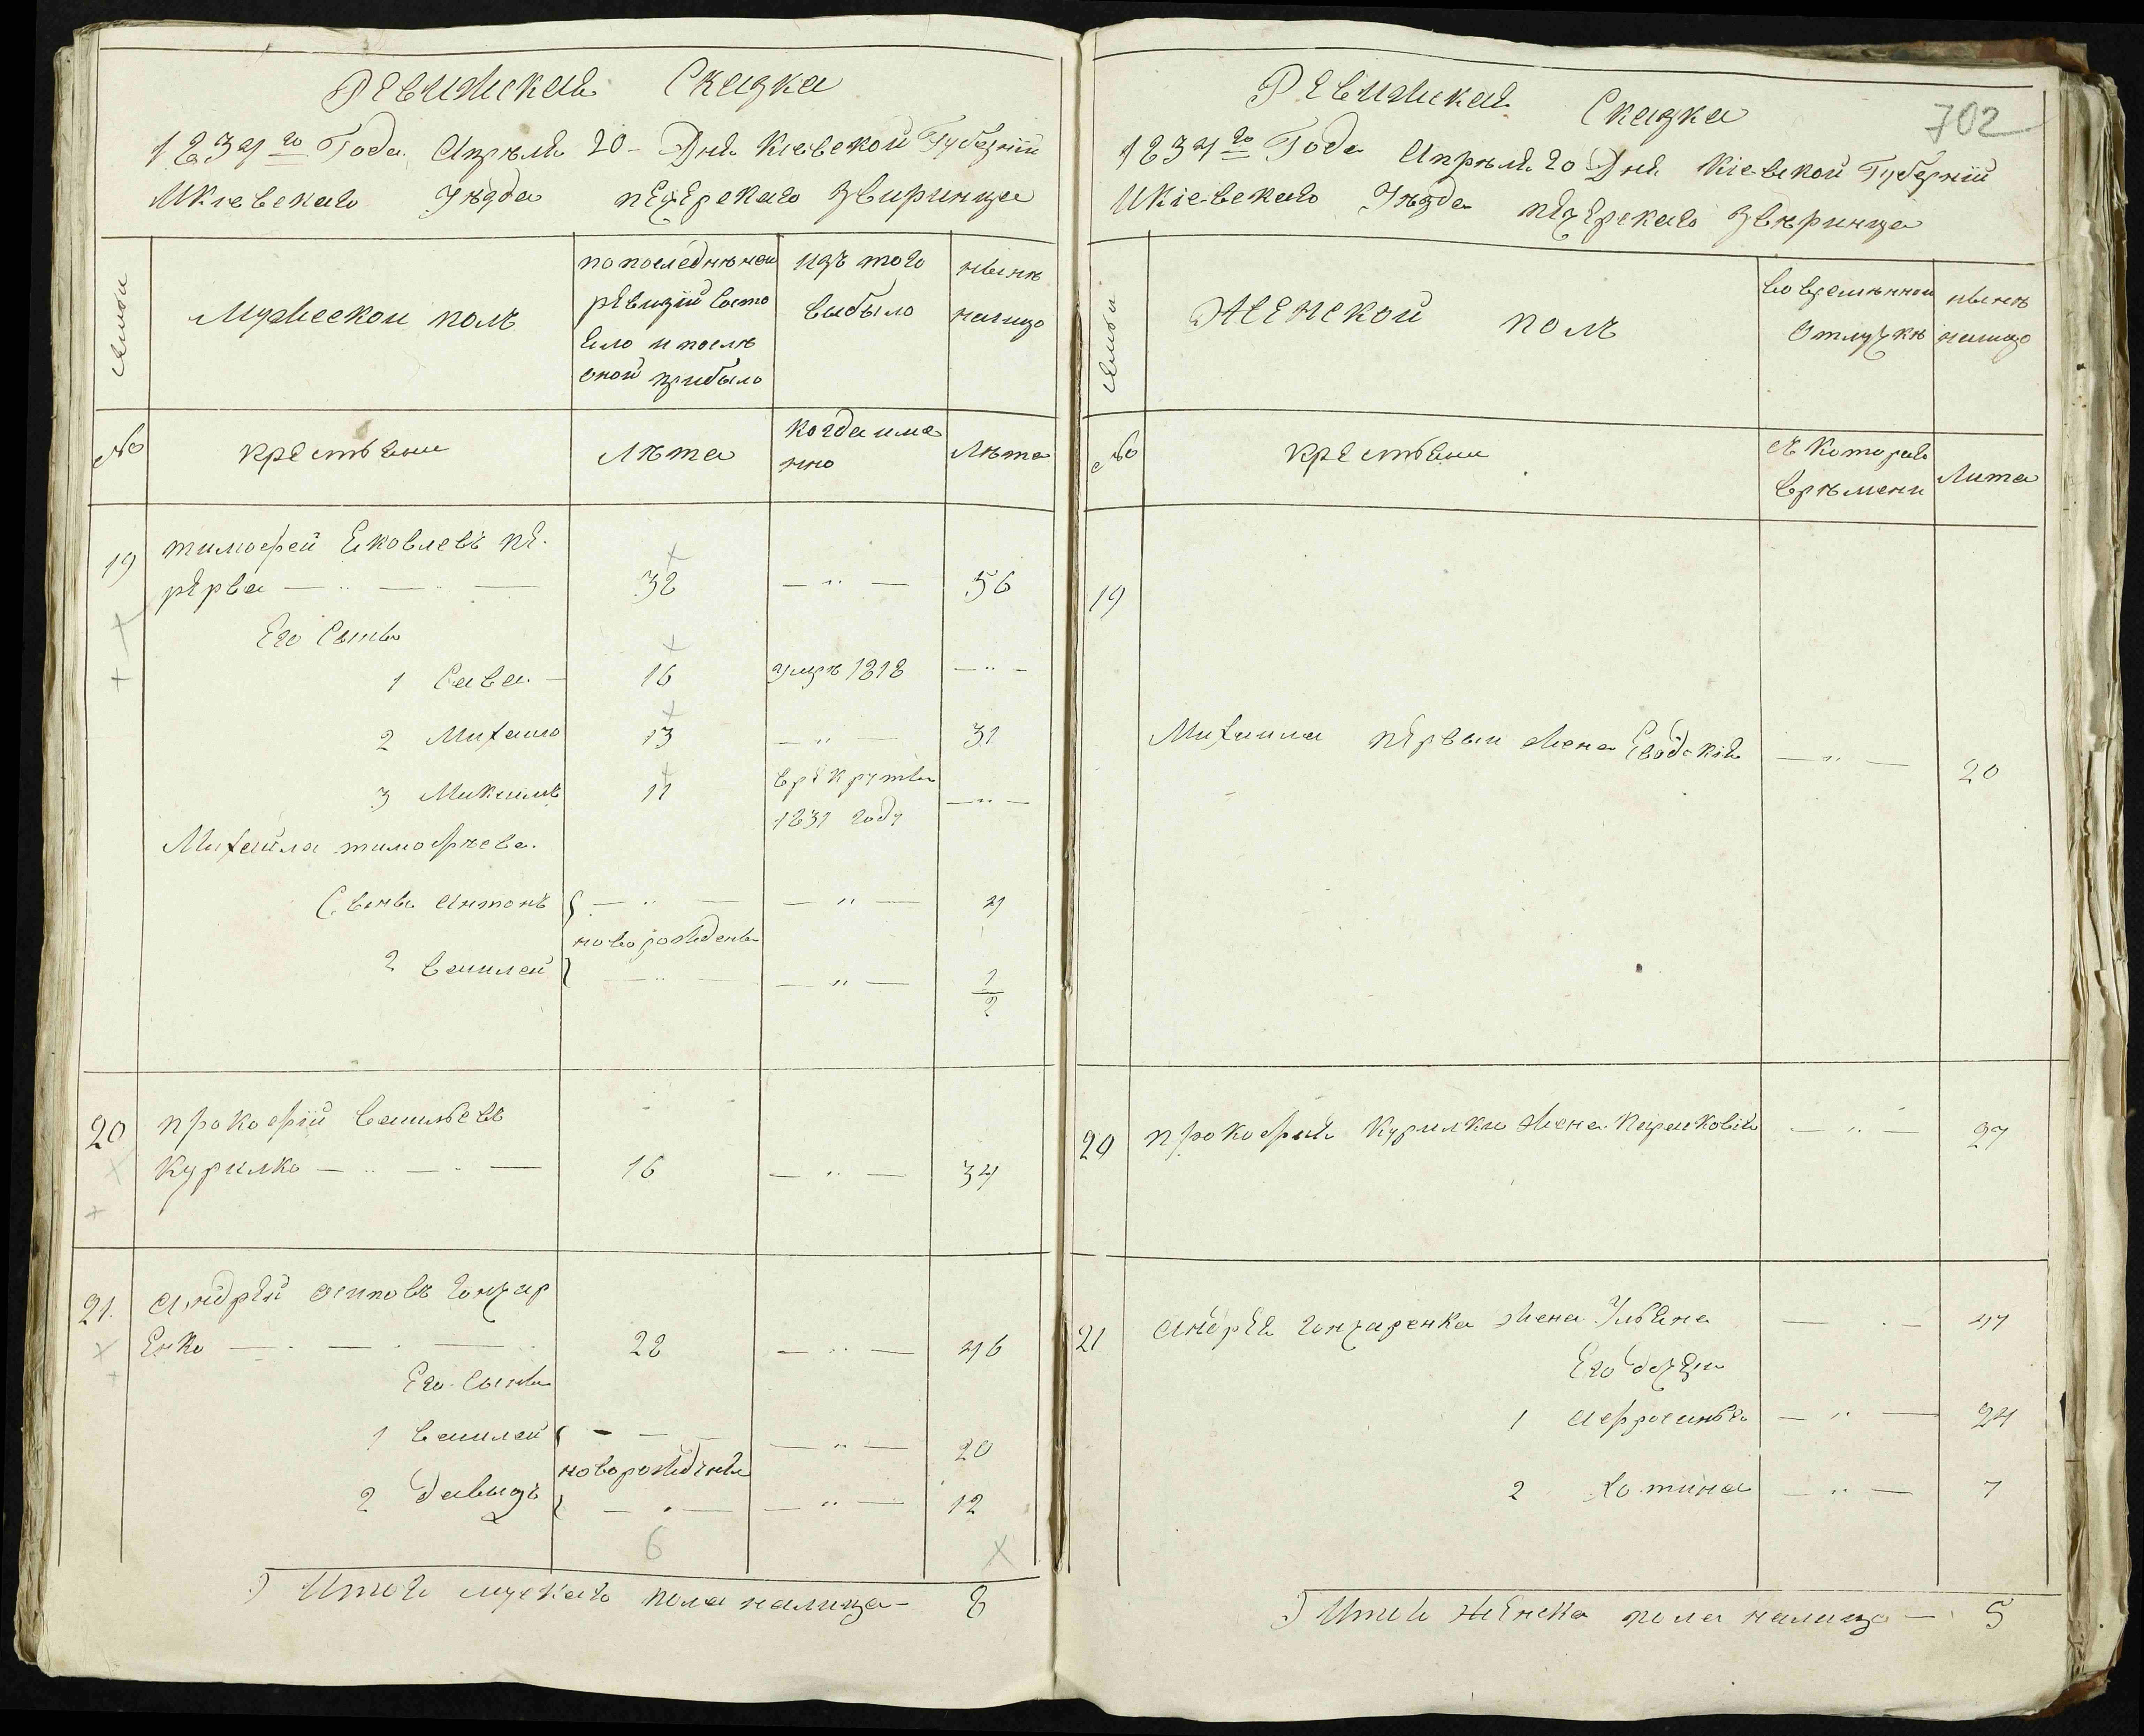 Ревижская Сказка
1834го Года Апреля 20 Дня Киевской Губернии
И Киевскаго Уезда печерскаго Звиринца
семьи
Мужеской полъ
по последнъней
ревизии состо
яло и послъ
оной прибыло
изъ того
выбыло
нынъ
налицо
№
крестьяни
Лъта
когда име
нно
Лъта
19
тимофей Яковлевъ пе-
рерва
32
56
Его Сыны
1 Сава
16
умръ 1818
2 Михаило
13
31
3 Микита
11
в рекруты
1831 году
Михайла тимофъева
Сыны Антонъ
4
новорожденны
2 Василей
1/2
20
прокофий Васильевъ
Курилко
16
34
21.
Андрей осиповъ гончар
Енко
28
46
Его Сыны
1 Василей
20
новорожденны
2 давыдъ
12
6
Итого мужкаго пола налицо
8
Ревижская Сказка
702
1834го Года Апръля 20 Дня Киевской Губернии
И Киевскаго Уъзда печерскаго Звъринца
семьи
Женской полъ
во времънной
Отлучкъ
нынъ
налицо
№
крестьяни
с Котораго
връмени
Лита
19
Михаила первый жена Евдокия
20
20
прокофия Курилки жена Парасковия
27
21
Андрея гончаренка жена Ульяна
47
Его дочери
1 Афросинья
24
2 Хотина
7
Итого женска пола налицо
5